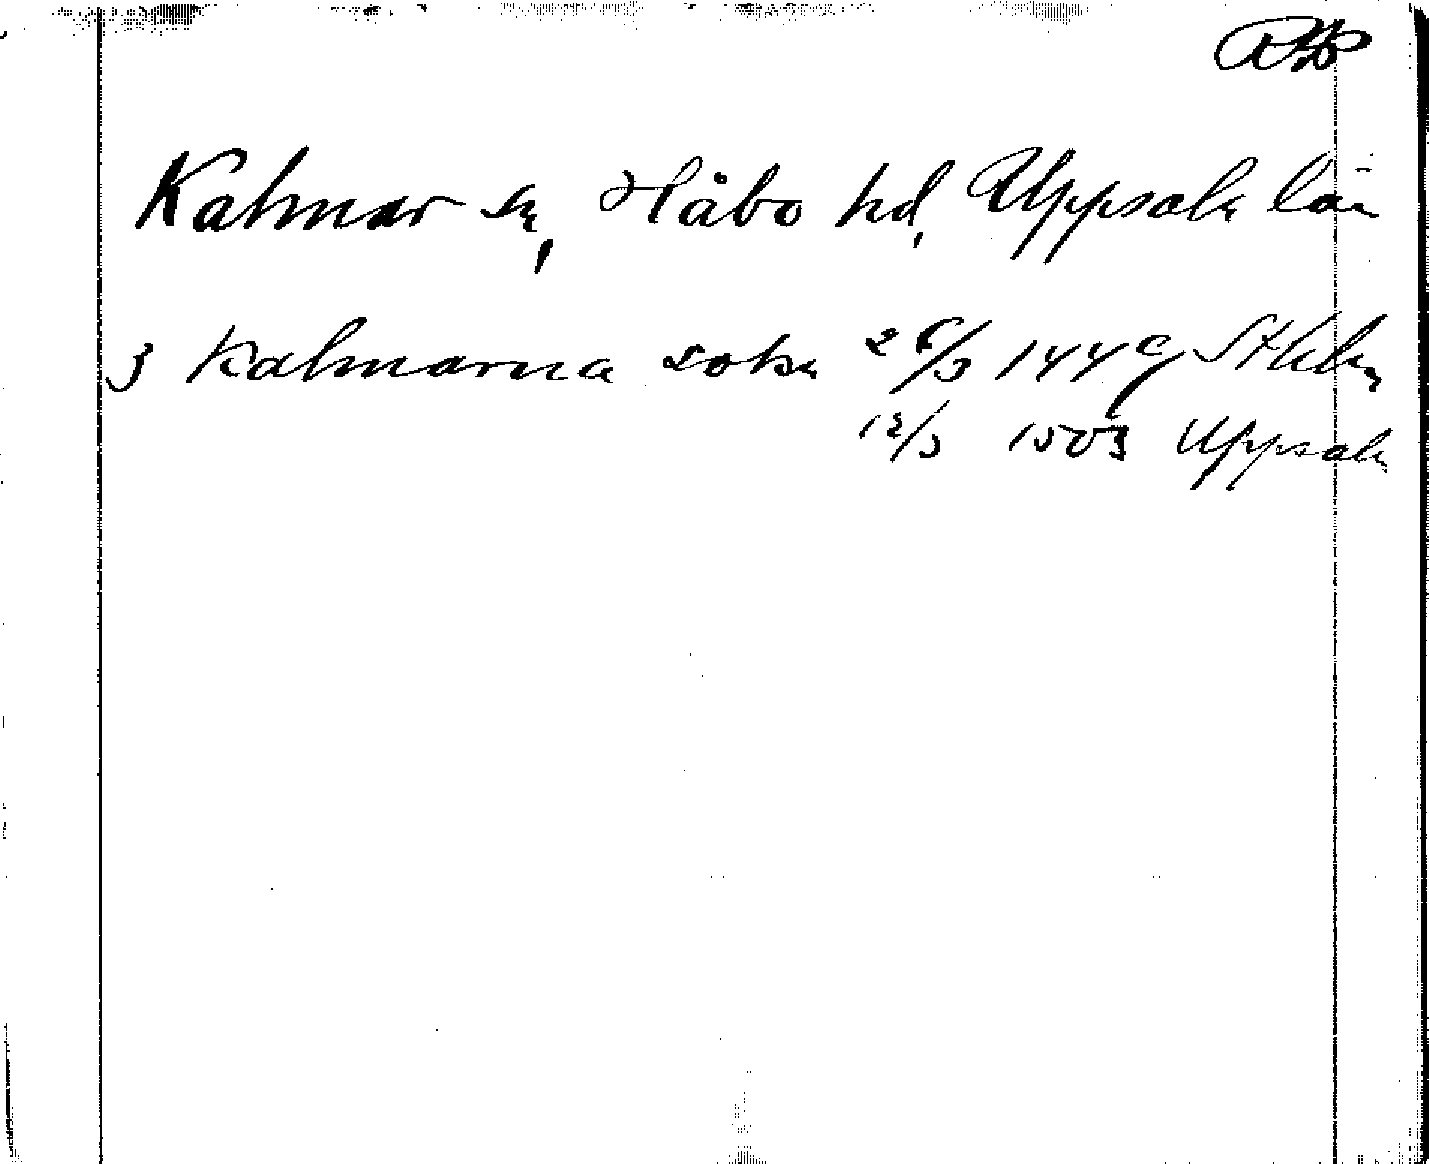 RAp
Kalmar sn, Håbo hd, Uppsala län
j Kalmarna sokn 26/3 1449 Sthlm
12/3 1503 Uppsala